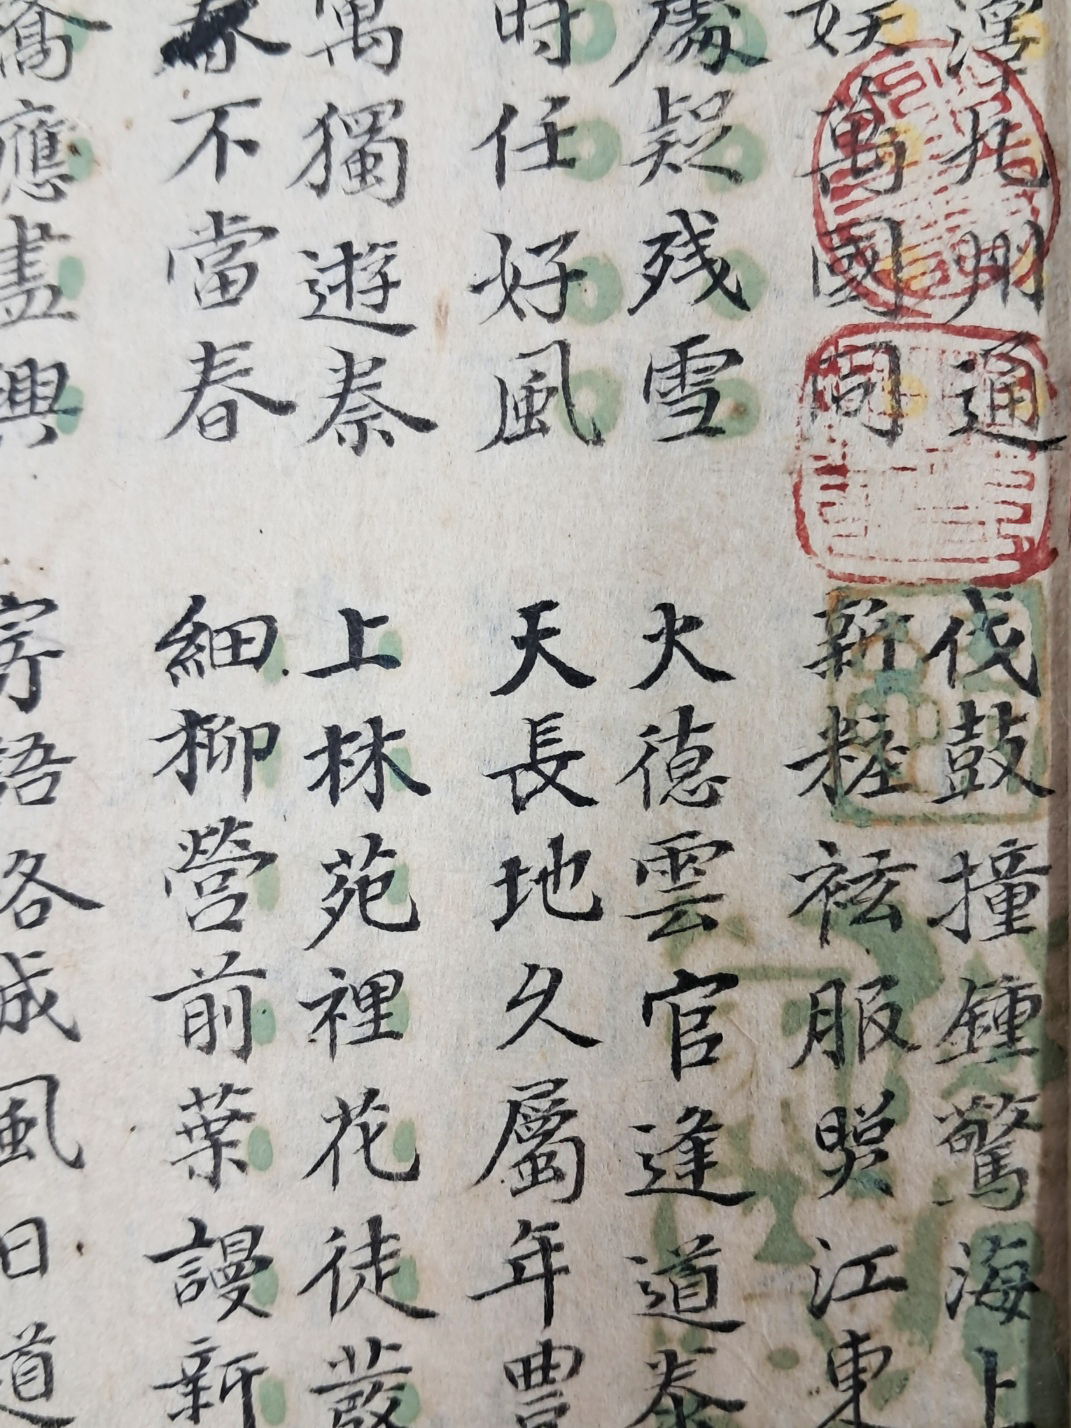 淫九州通 伐鼓撞鍾驚海上
妖萬國同 新粧袨服照江東
處疑残雪 大德雲官逢道泰
時任好風 天長地久屬年豊
萬獨遊秦 上林苑裡花徒發
不當春 細柳營前葉謾新
應盡興 寄語各成風日道